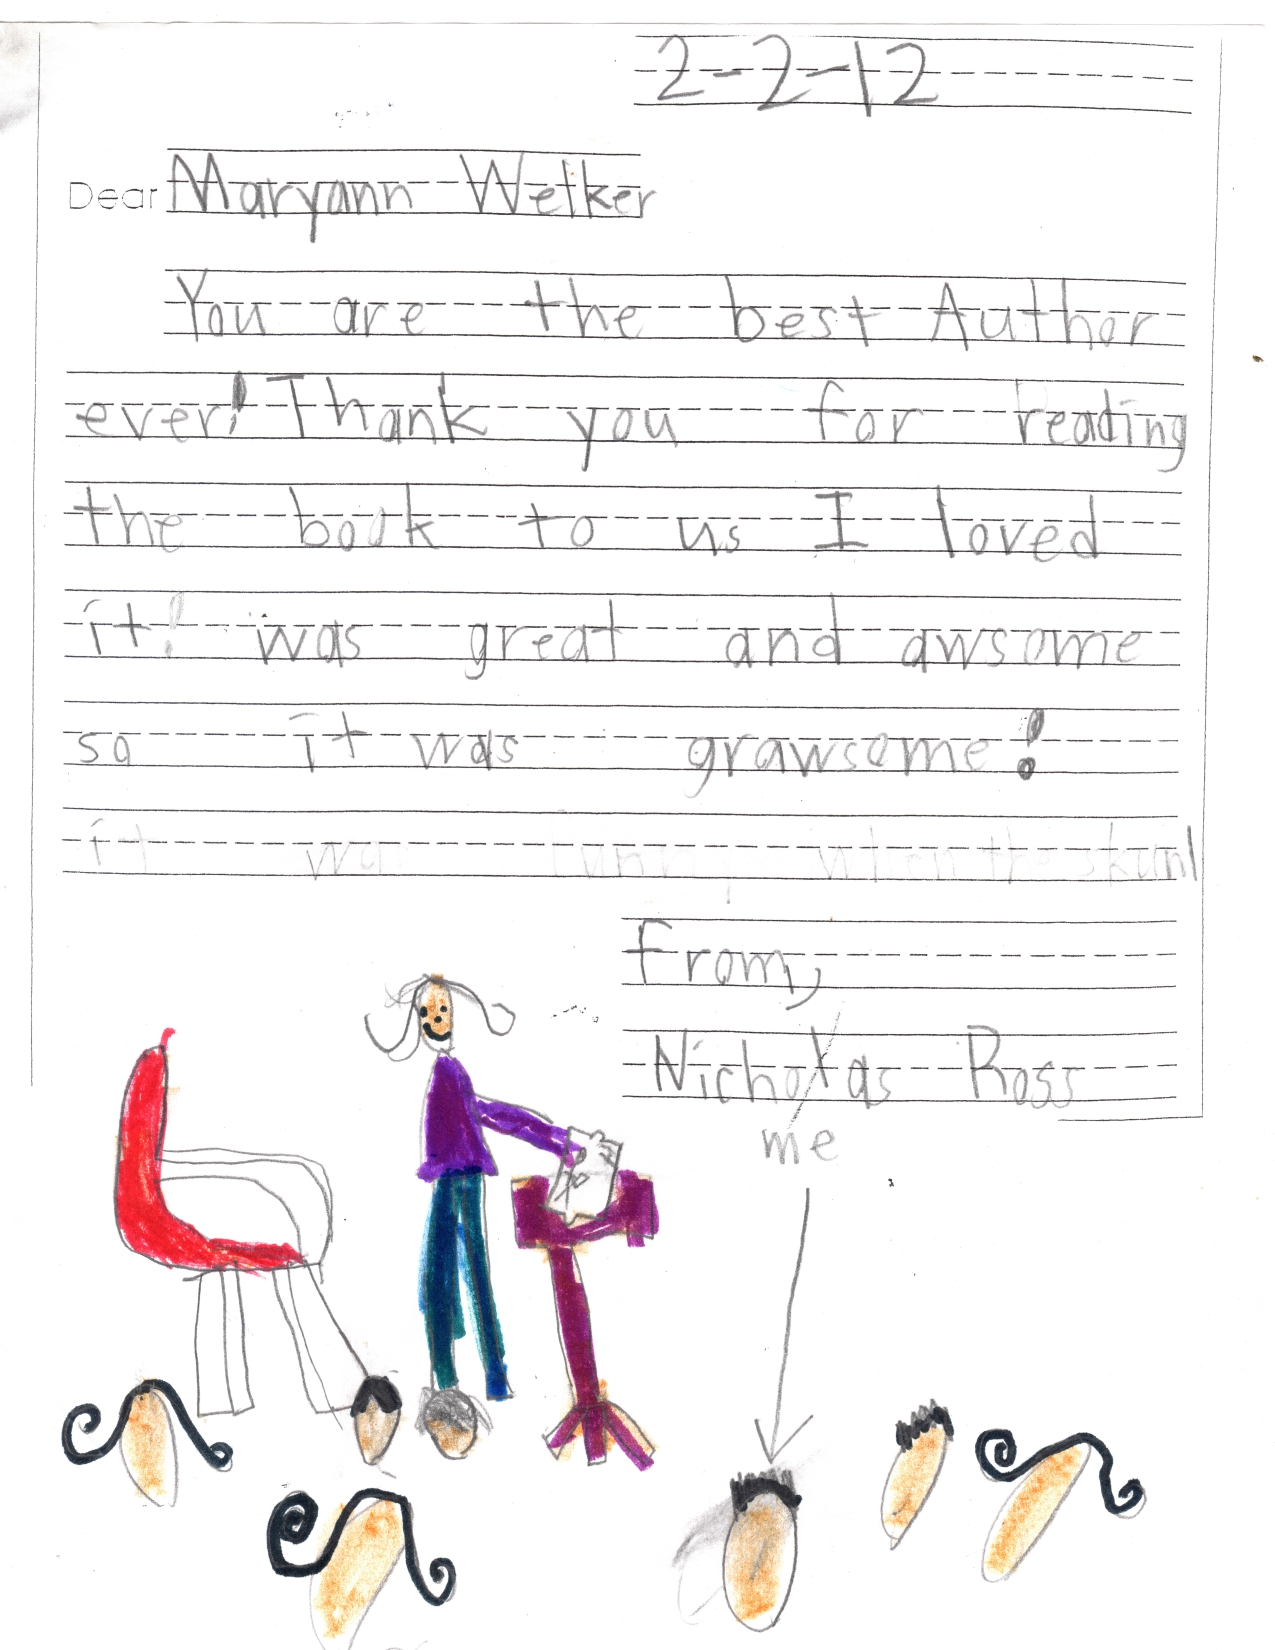 2-2-12
Dear Maryann Welker
You are the best Author
ever! Thank you for reading
the book to us I loved
it! was great and awsome
so it was grawsome!
it wa funny when the skunk
from,
Nicholas Ross
me